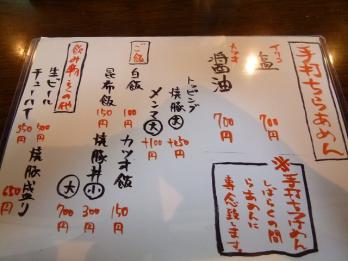 手打ちらぁめん
イリコ
塩
700円
カツオ
醤油
700円
トッピング
焼豚大 +250円
メンマ大 +100円
ご飯
白飯 100円
昆布飯 150円
カツオ飯 150円
焼豚丼小 300円
大 700円
飲み物・その他
生ビール 500円
チューハイ 350円
焼豚盛り 650円
※手打ちつけめん
しばらくの間
らぁめんに
専念致します。